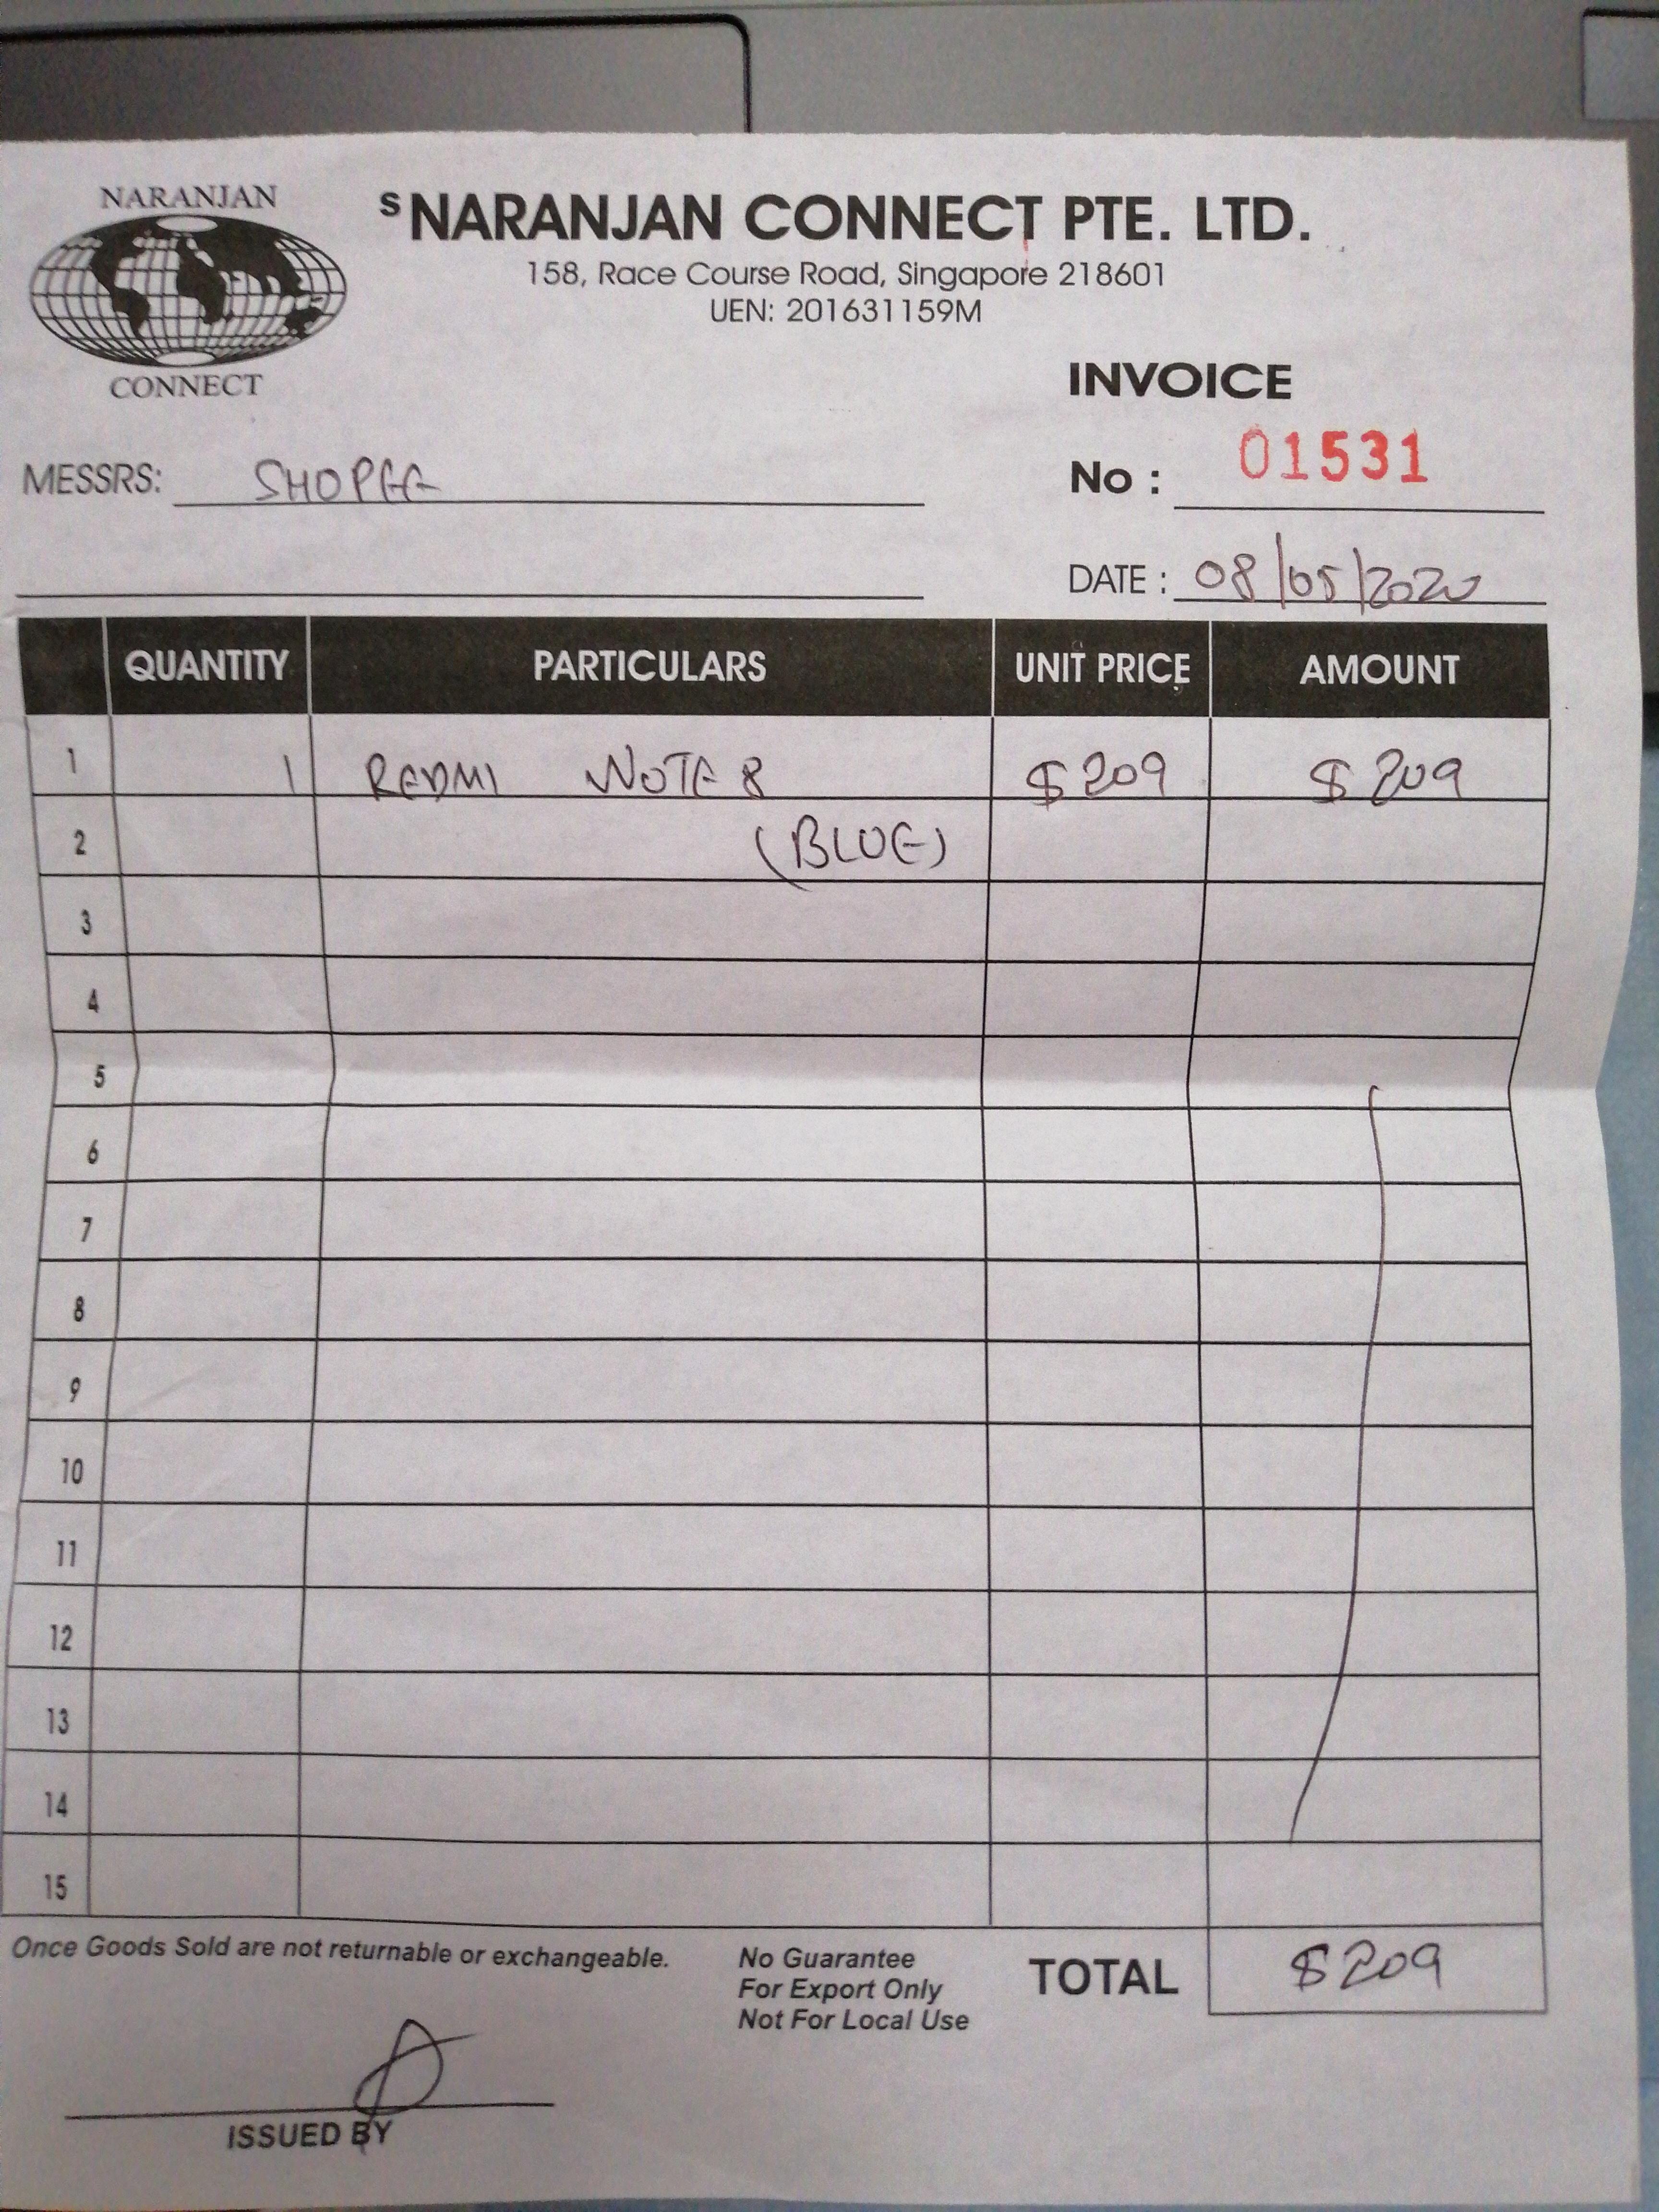 NARANJAN
CONNECT
S NARANJAN CONNECT PTE. LTD.
158, Race Course Road, Singapore 218601
UEN: 201631159M
INVOICE
MESSRS: SHOPEE
No : 01531
DATE : 08/05/2020
QUANTITY PARTICULARS UNIT PRICE AMOUNT
1 1 REDMI NOTE 8 $209 $209
2 (BLUE)
3
4
5
6
7
8
9
10
11
12
13
14
15
Once Goods Sold are not returnable or exchangeable.
No Guarantee
For Export Only
Not For Local Use
TOTAL $209
ISSUED BY